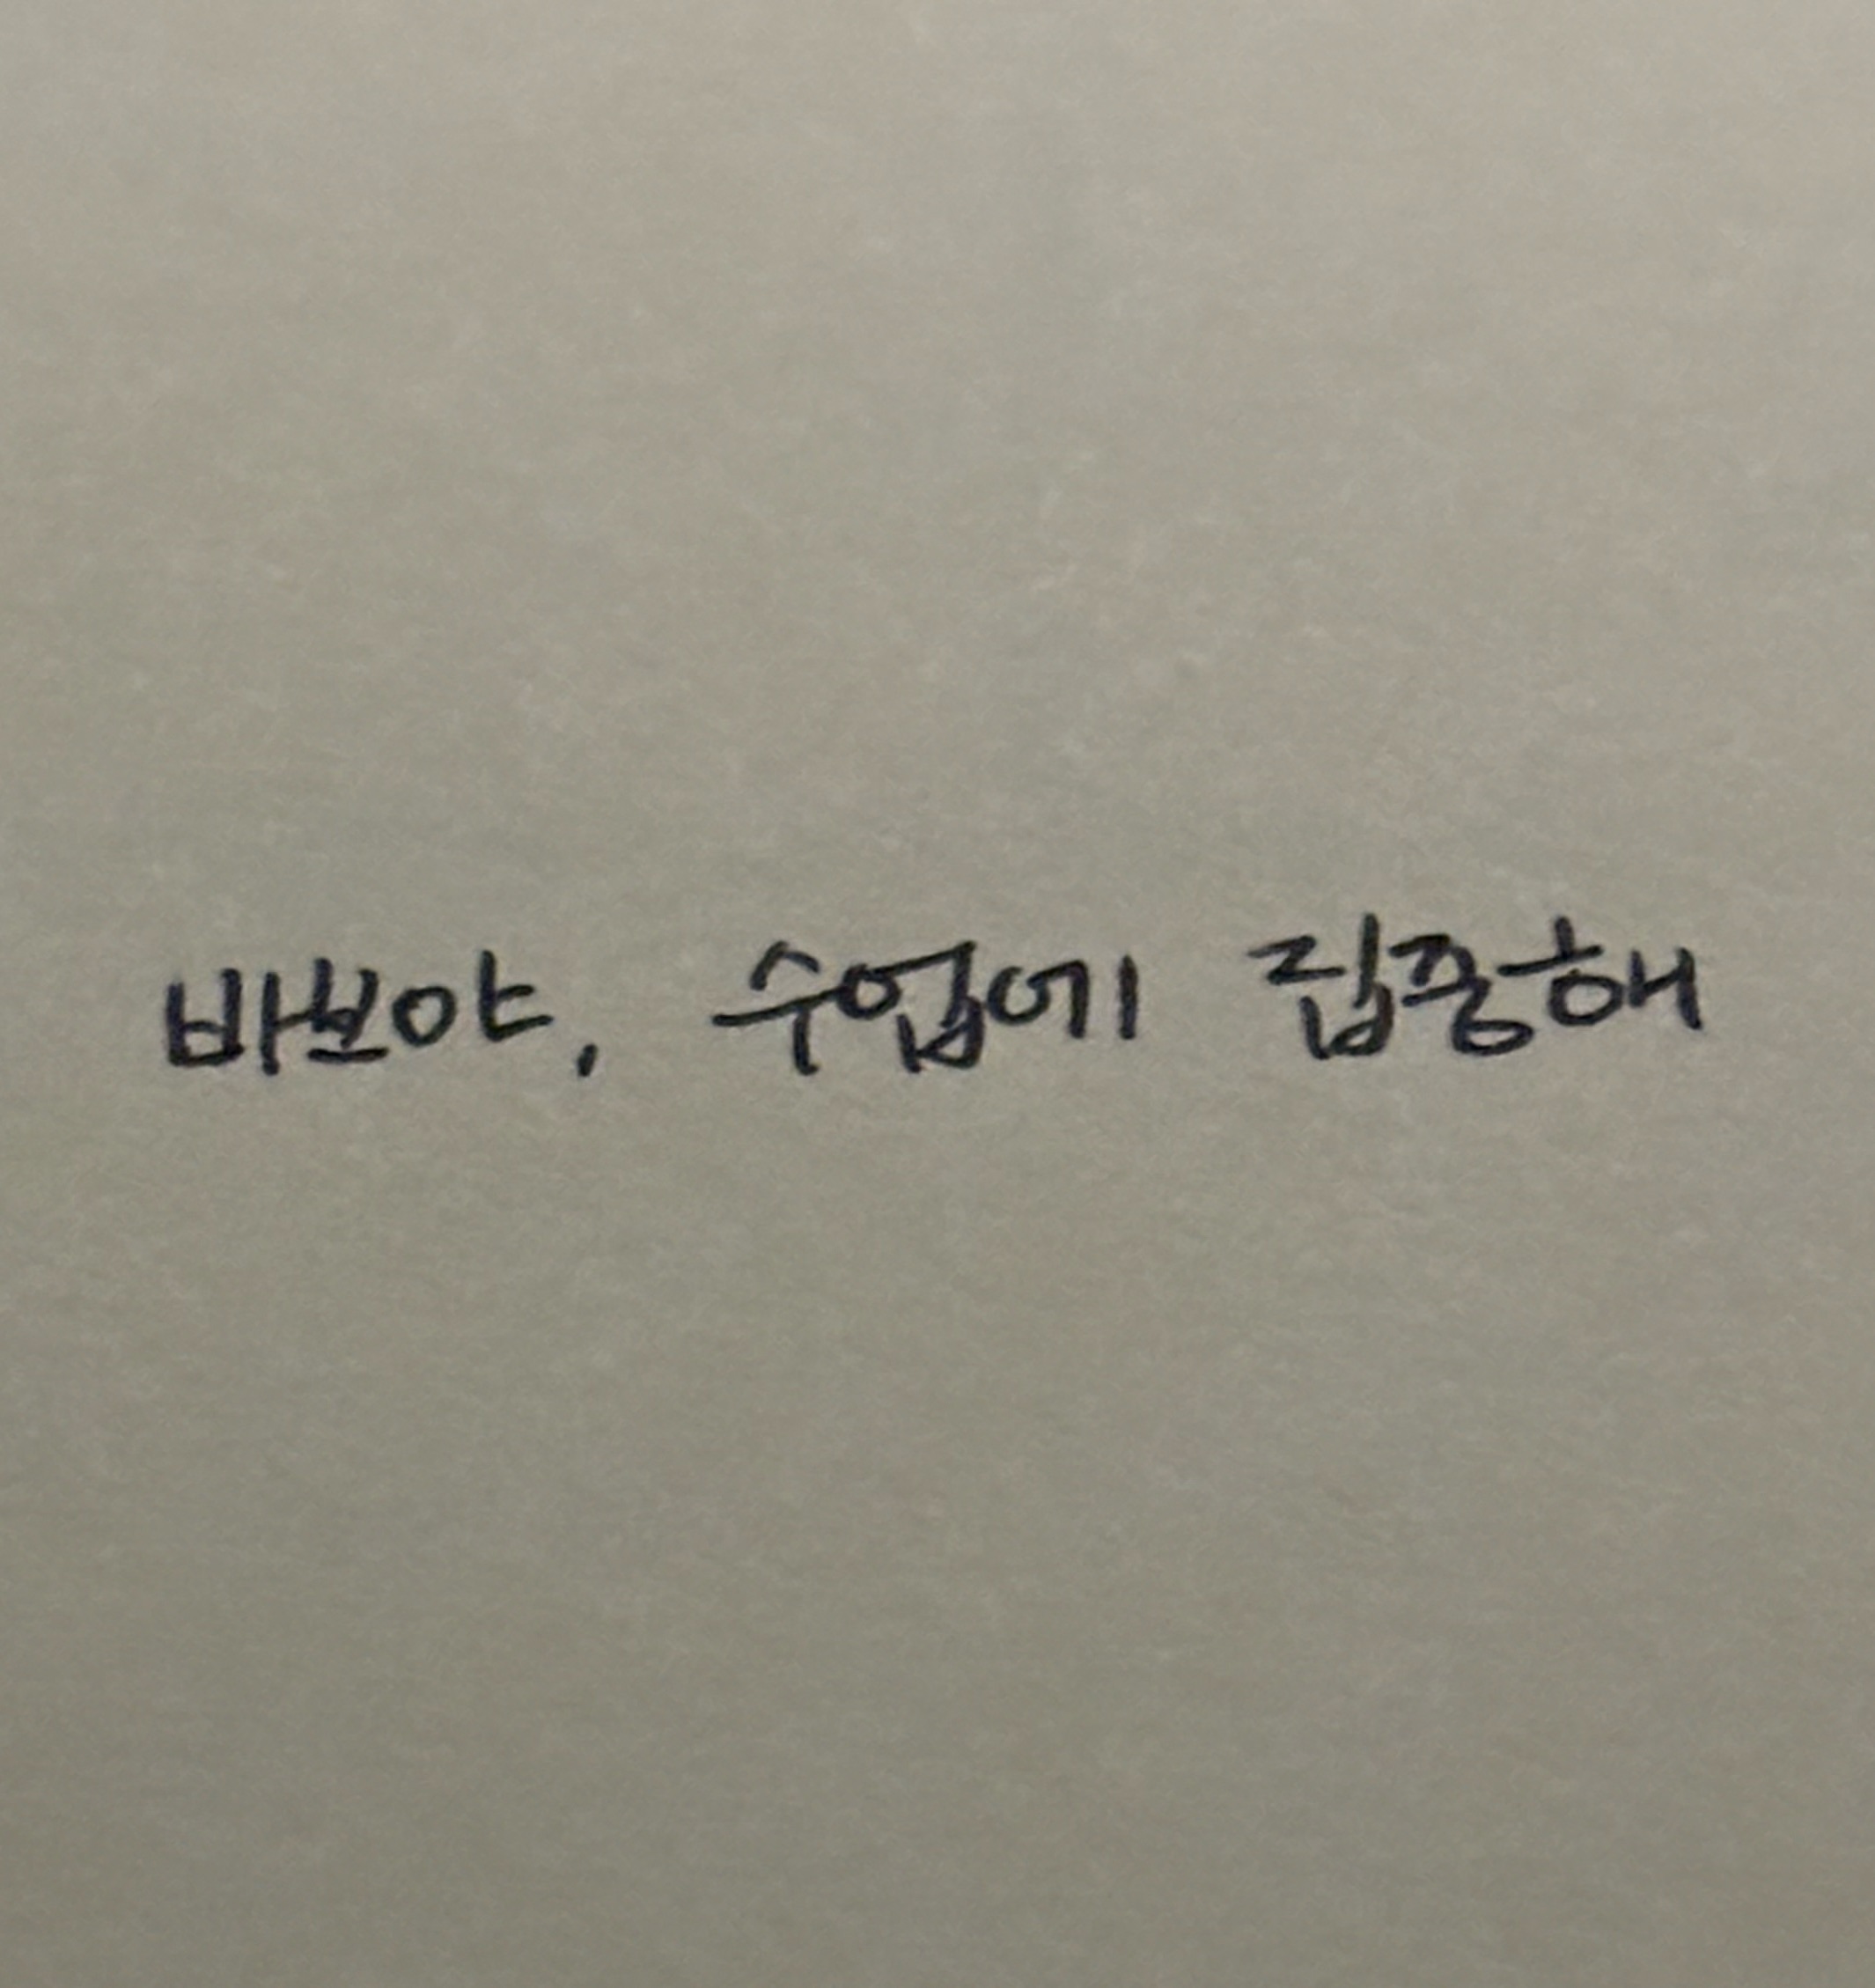 바보야, 수업에 집중해